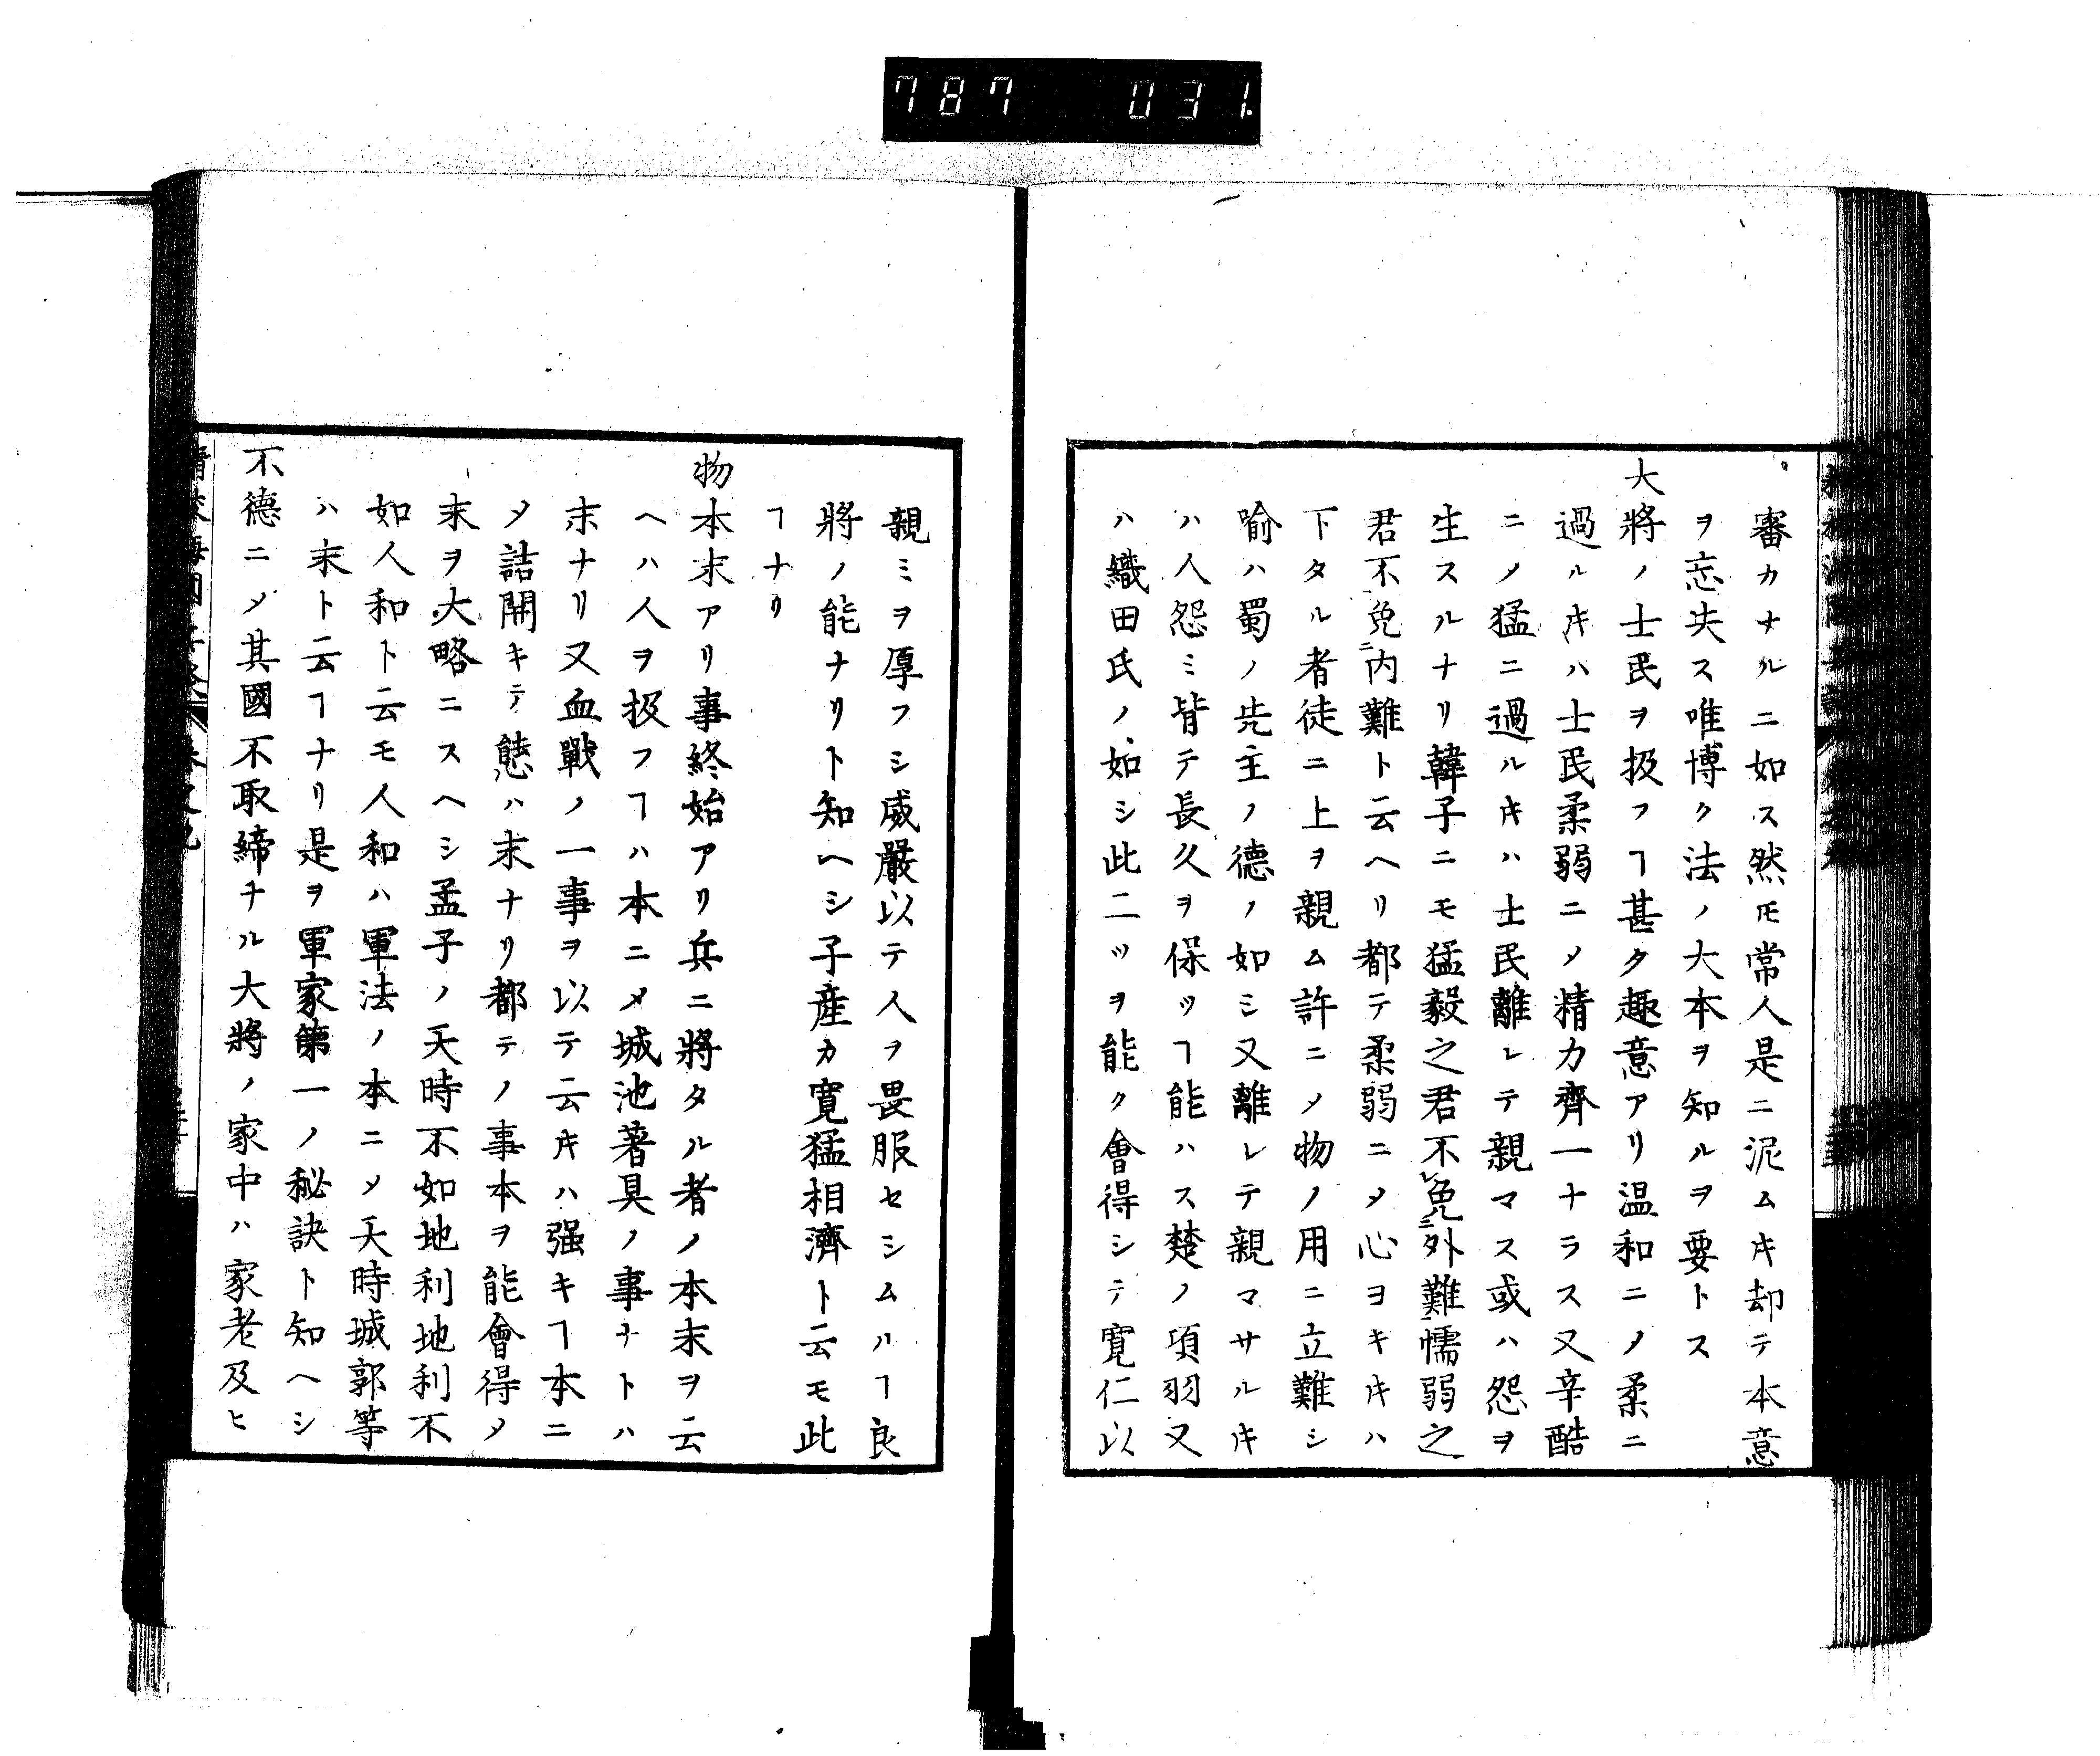 787 031.
審カナルニ如ス然𪜈常人是ニ泥ムキ却テ本意
ヲ忘失ス唯博ク法ノ大本ヲ知ルヲ要トス
大將ノ士民ヲ扱フヿ甚タ趣意アリ温和ニ〆柔ニ
過ルキハ士民柔弱ニ〆精力齊一ナラス又辛酷
ニ〆猛ニ過ルキハ士民離レテ親マス或ハ怨ヲ
生スルナリ韓子ニモ猛毅之君不レ免二外難一懦弱之
君不免二内難ト云ヘリ都テ柔弱ニ〆心ヨキキハ
下タル者徒ニ上ヲ親ム許ニ〆物ノ用ニ立難シ
喻ハ蜀ノ先主ノ德ノ如シ又離レテ親マサルキ
ハ人怨ミ背テ長久ヲ保ツヿ能ハス楚ノ項羽又
ハ織田氏ノ如シ此二ツヲ能ク會得シテ寬仁以
親ミヲ厚フシ威嚴以テ人ヲ畏服セシムルヿ良
將ノ能ナリト知ヘシ子産カ寬猛相濟ト云モ此
ヿナリ
物本末アリ事終始アリ兵ニ將タル者ノ本末ヲ云
ヘハ人ヲ扱フヿハ本ニ〆城池著具ノ事ナトハ
末ナリ又血戰ノ一事ヲ以テ云キハ强キヿ本ニ
〆詰開キテ態ハ末ナリ都テノ事本ヲ能會得〆
末ヲ大略ニスヘシ孟子ノ天時不如地利地利不
如人和ト云モ人和ハ軍法ノ本ニ〆天時城郭等
ハ末ト云ヿナリ是ヲ軍家第一ノ秘訣ト知ヘシ
不德ニ〆其國不取締ナル大將ノ家中ハ家老及ヒ